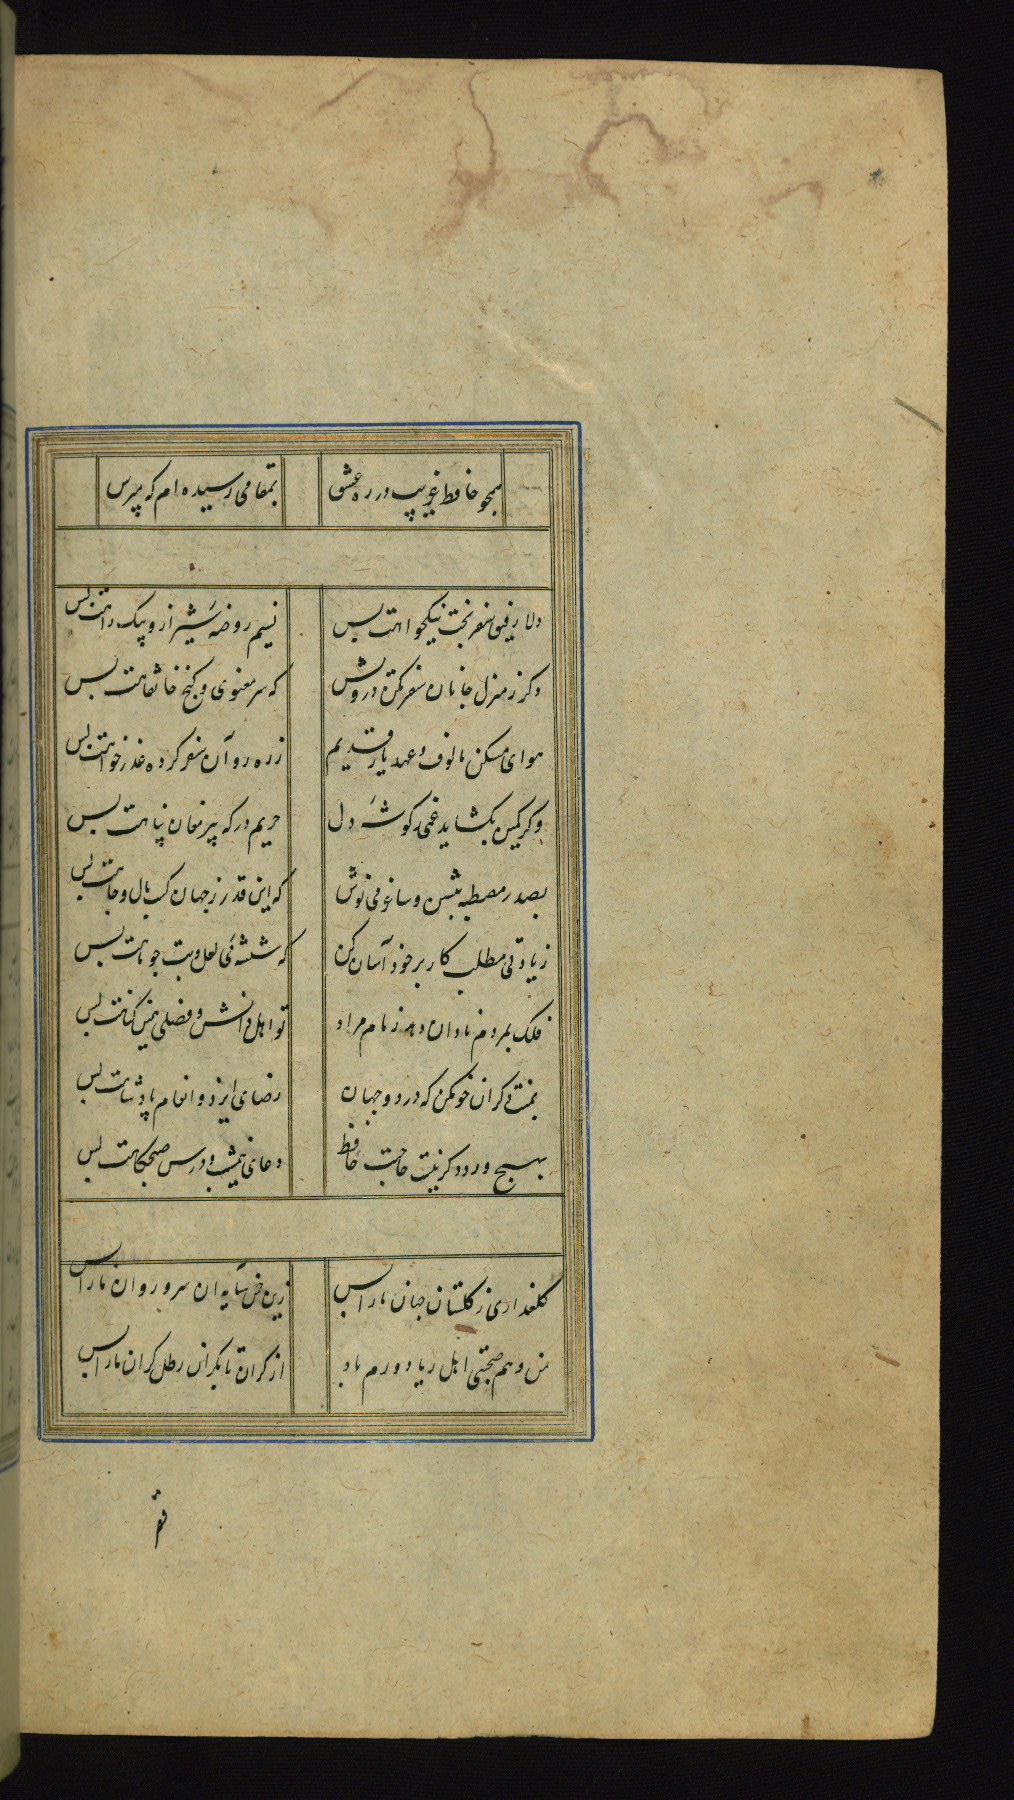 همچو حافظ غریب در ره عشق بمقامی رسیده ام که مپرس
دلا رفیق سفر بخت نیکخواهت بس نسیم روضه شیراز و پیک راهت بس
دکر ز منزل جانان سفر مکن درویش که سر معنوی و کنج خانقاهت بس
هوای مسکن مالوف و عهد یار قدیم ز ره روان سفر کرده عذر خواهت بس
وکر کمین بکشاید غمی ز کوشه دل حریم درکه پیر مغان پناهت بس
بصدر مصطبه بنشین و ساغر می نوش که این قدر ز جهان کسب مال و جاهت بس
زیادتی مطلب کار بر خود آسان کن که شیشه می لعل و بت چو ماهت بس
فلک بمردم نادان دهد زمام مراد تو اهل دانش و فضلی همین کناهت بس
بمنت دکران خو مکن که در دو جهان رضای ایزد و انعام پادشاهت بس
بهیچ ورد دکر نیست حاجت حافظ دعای نیمشب و درس صبحکاهت بس
کلعذاری ز کلستان جهان ما را بس زین چمن سایه ان سرو روان ما را بس
من و هم صحبتی اهل ریا دورم باد از کرانان جهان رطل کران ما را بس
قصر